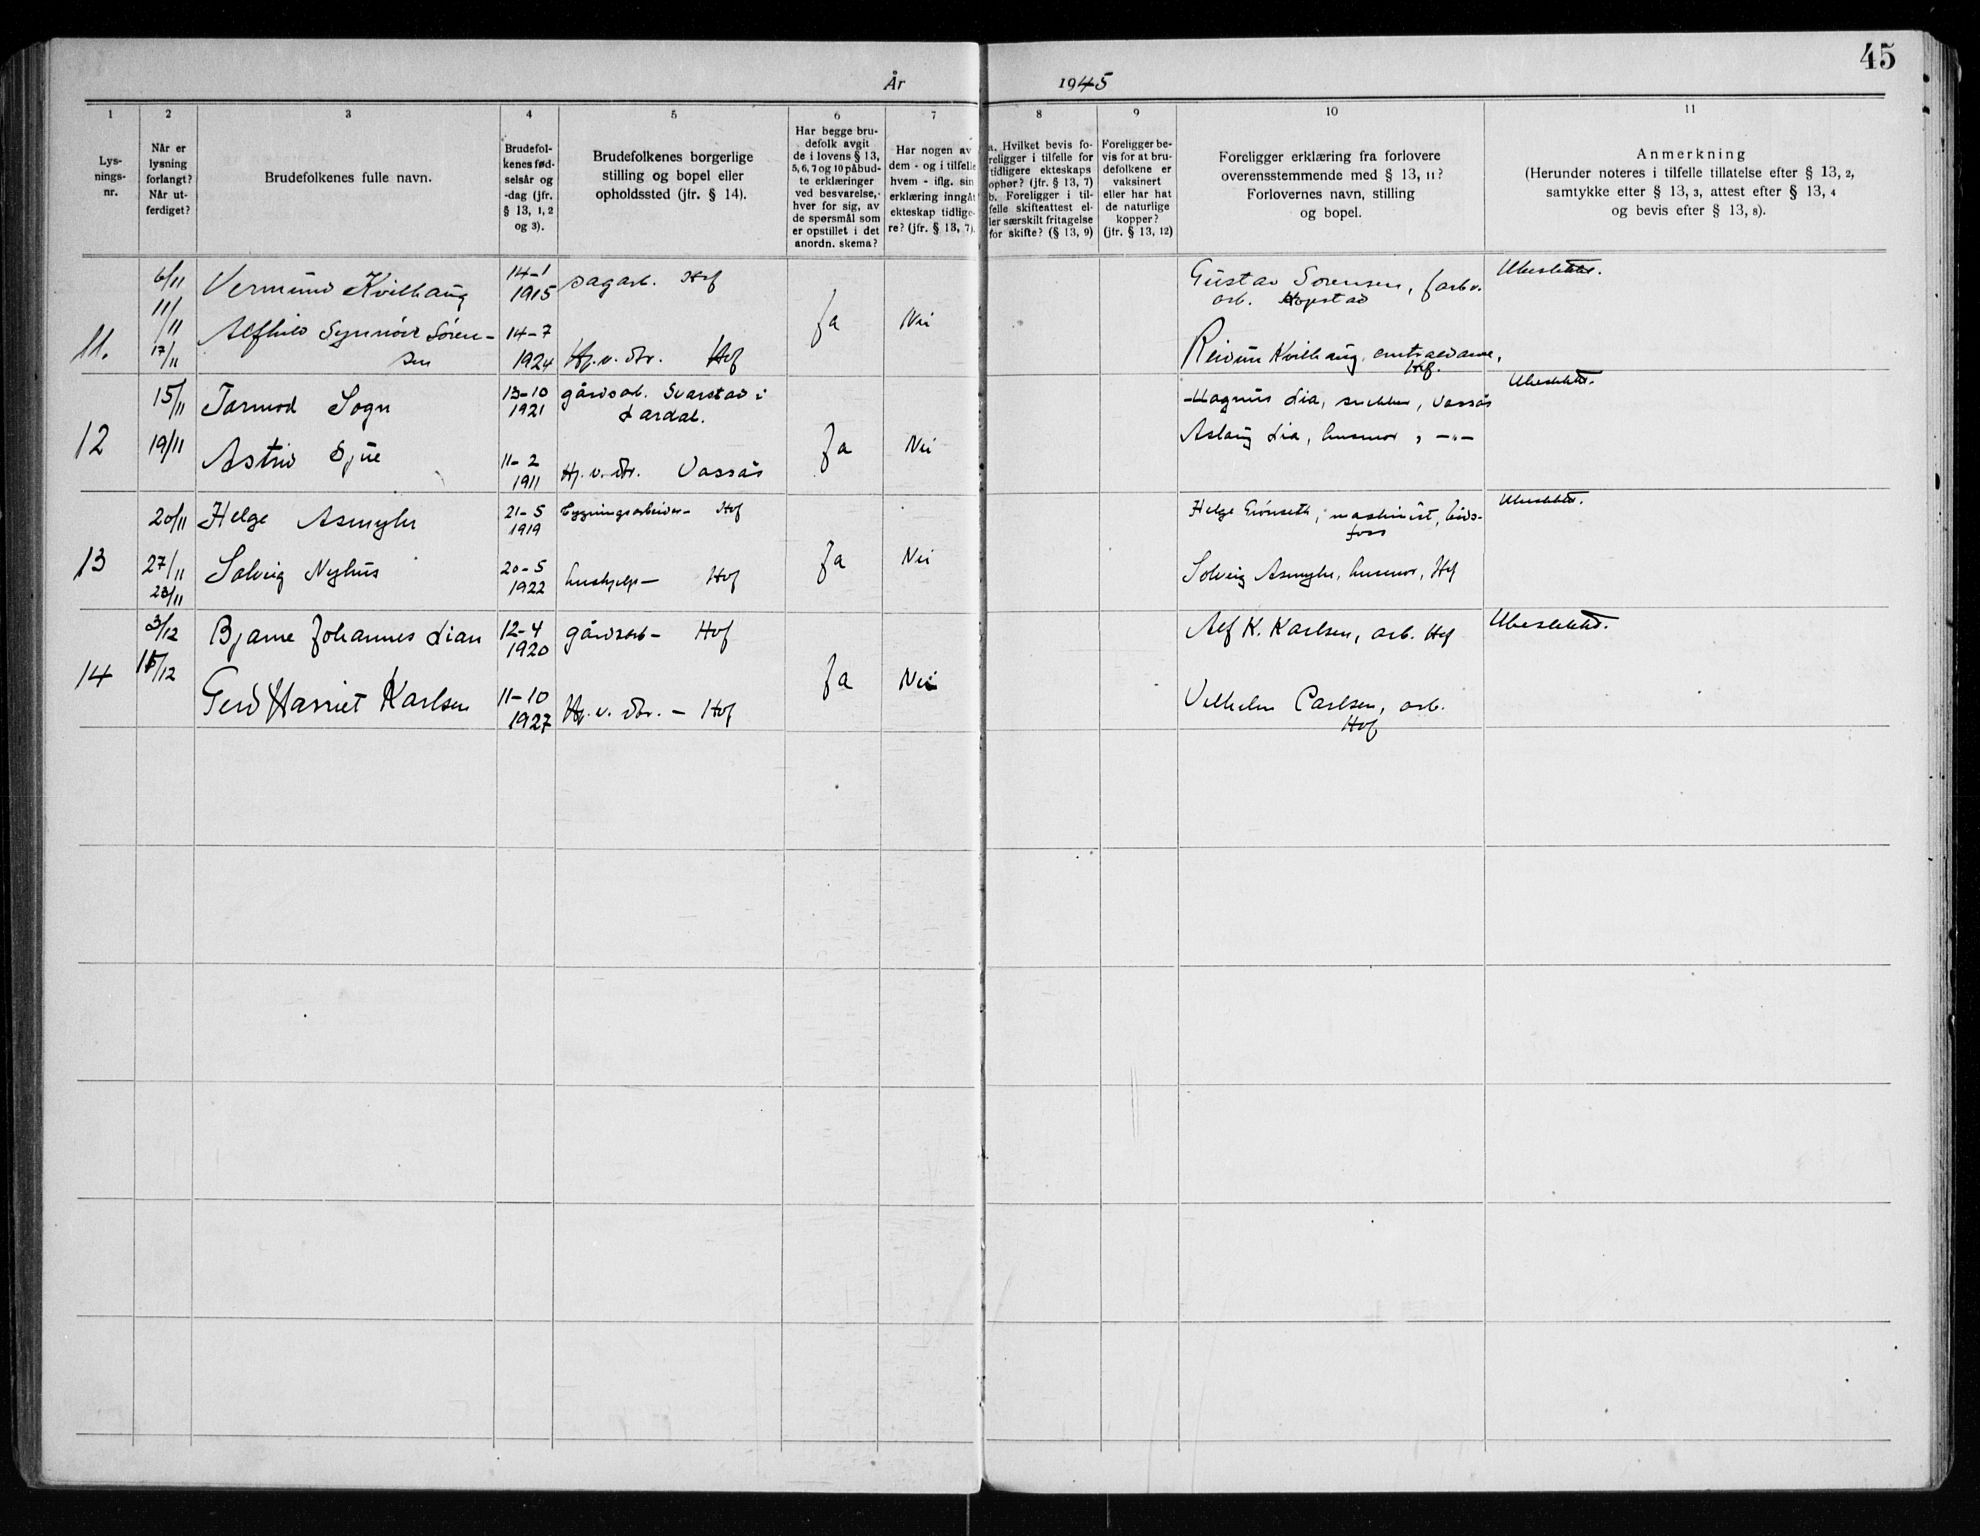 45
År 1945
1 2 3 4 5 6 7 8 9 10 11
Lys-
nings-
nr.
Når er
lysning
forlangt?
Når ut-
ferdiget?
Brudefolkenes fulle navn.
Brudefol-
kenes fød-
selsår og
-dag (jfr.
§ 13, 1, 2
og 3).
Brudefolkenes borgerlige
stilling og bopel eller
opholdssted (jfr. § 14).
Har begge bru-
defolk avgit
de i lovens § 13,
5, 6, 7 og 10 påbud-
te erklæringer
ved besvarelse,
hver for sig, av
de spørsmål som
er opstillet i det
anordn. skema?
Har nogen av
dem - og i tilfelle
hvem - iflg. sin
erklæring inngåt
ekteskap tidlige-
re? (jfr. § 13, 7).
a. Hvilket bevis fo-
religger i tilfelle for
tidligere ekteskaps
ophør? (jfr. § 13, 7)
b. Foreligger i til-
felle skifteattest el-
ler særskilt fritagelse
for skifte? (§ 13, 9)
Foreligger be-
vis for at bru-
defolkene er
vaksinert
eller har hat
de naturlige
kopper?
(jfr. § 13, 12)
Foreligger erklæring fra forlovere
overensstemmende med § 13, 11?
Forlovernes navn, stilling
og bopel.
Anmerkning
(Herunder noteres i tilfelle tillatelse efter § 13, 2,
samtykke efter § 13, 3, attest efter § 13, 4
og bevis efter § 13, 8).
11.
6/11
11/11
17/11
Vermund Kvilhaug
14-1
1915
sagarb. Hof
Alfhild Synnøve Søren-
sen
14-7
1924
Hj.v. dtr. Hof
Ja
Nei
Gustav Sørensen, farbv.
arb. Hopestad
Reidun Kvilhaug, centraldame,
Hof.
Ubeslektet.
12
15/11
19/11
Tarmod Sogn
13-10
1921
gårdsarb. Svarstad i
Lardal.
Astrid Bjue
11-2
1911
Hj.v. dtr. Vassås
Ja
Nei
Magnus Lia, snekker, Vassås
Aslaug Lia, husmor, -"-
Ubeslektet.
13
20/11
27/11
28/11
Helge Asmyhr
21-5
1919
bygningsarbeider- Hof
Solveig Nyhus
20-5
1922
hushjelp- Hof
Ja
Nei
Helge Grønseth, maskinist, Eids-
foss
Solveig Asmyhr, husmor, Hof
Ubeslektet.
14
3/12
15/12
Bjarne Johannes Lian
12-4
1920
gårdsarb- Hof
Gerd Harriet Karlsen
11-10
1927
Hj.v. dtr. - Hof
Ja
Nei
Alf K. Karlsen, arb. Hof
Vilhelm Carlsen, arb.
Hof
Ubeslektet.